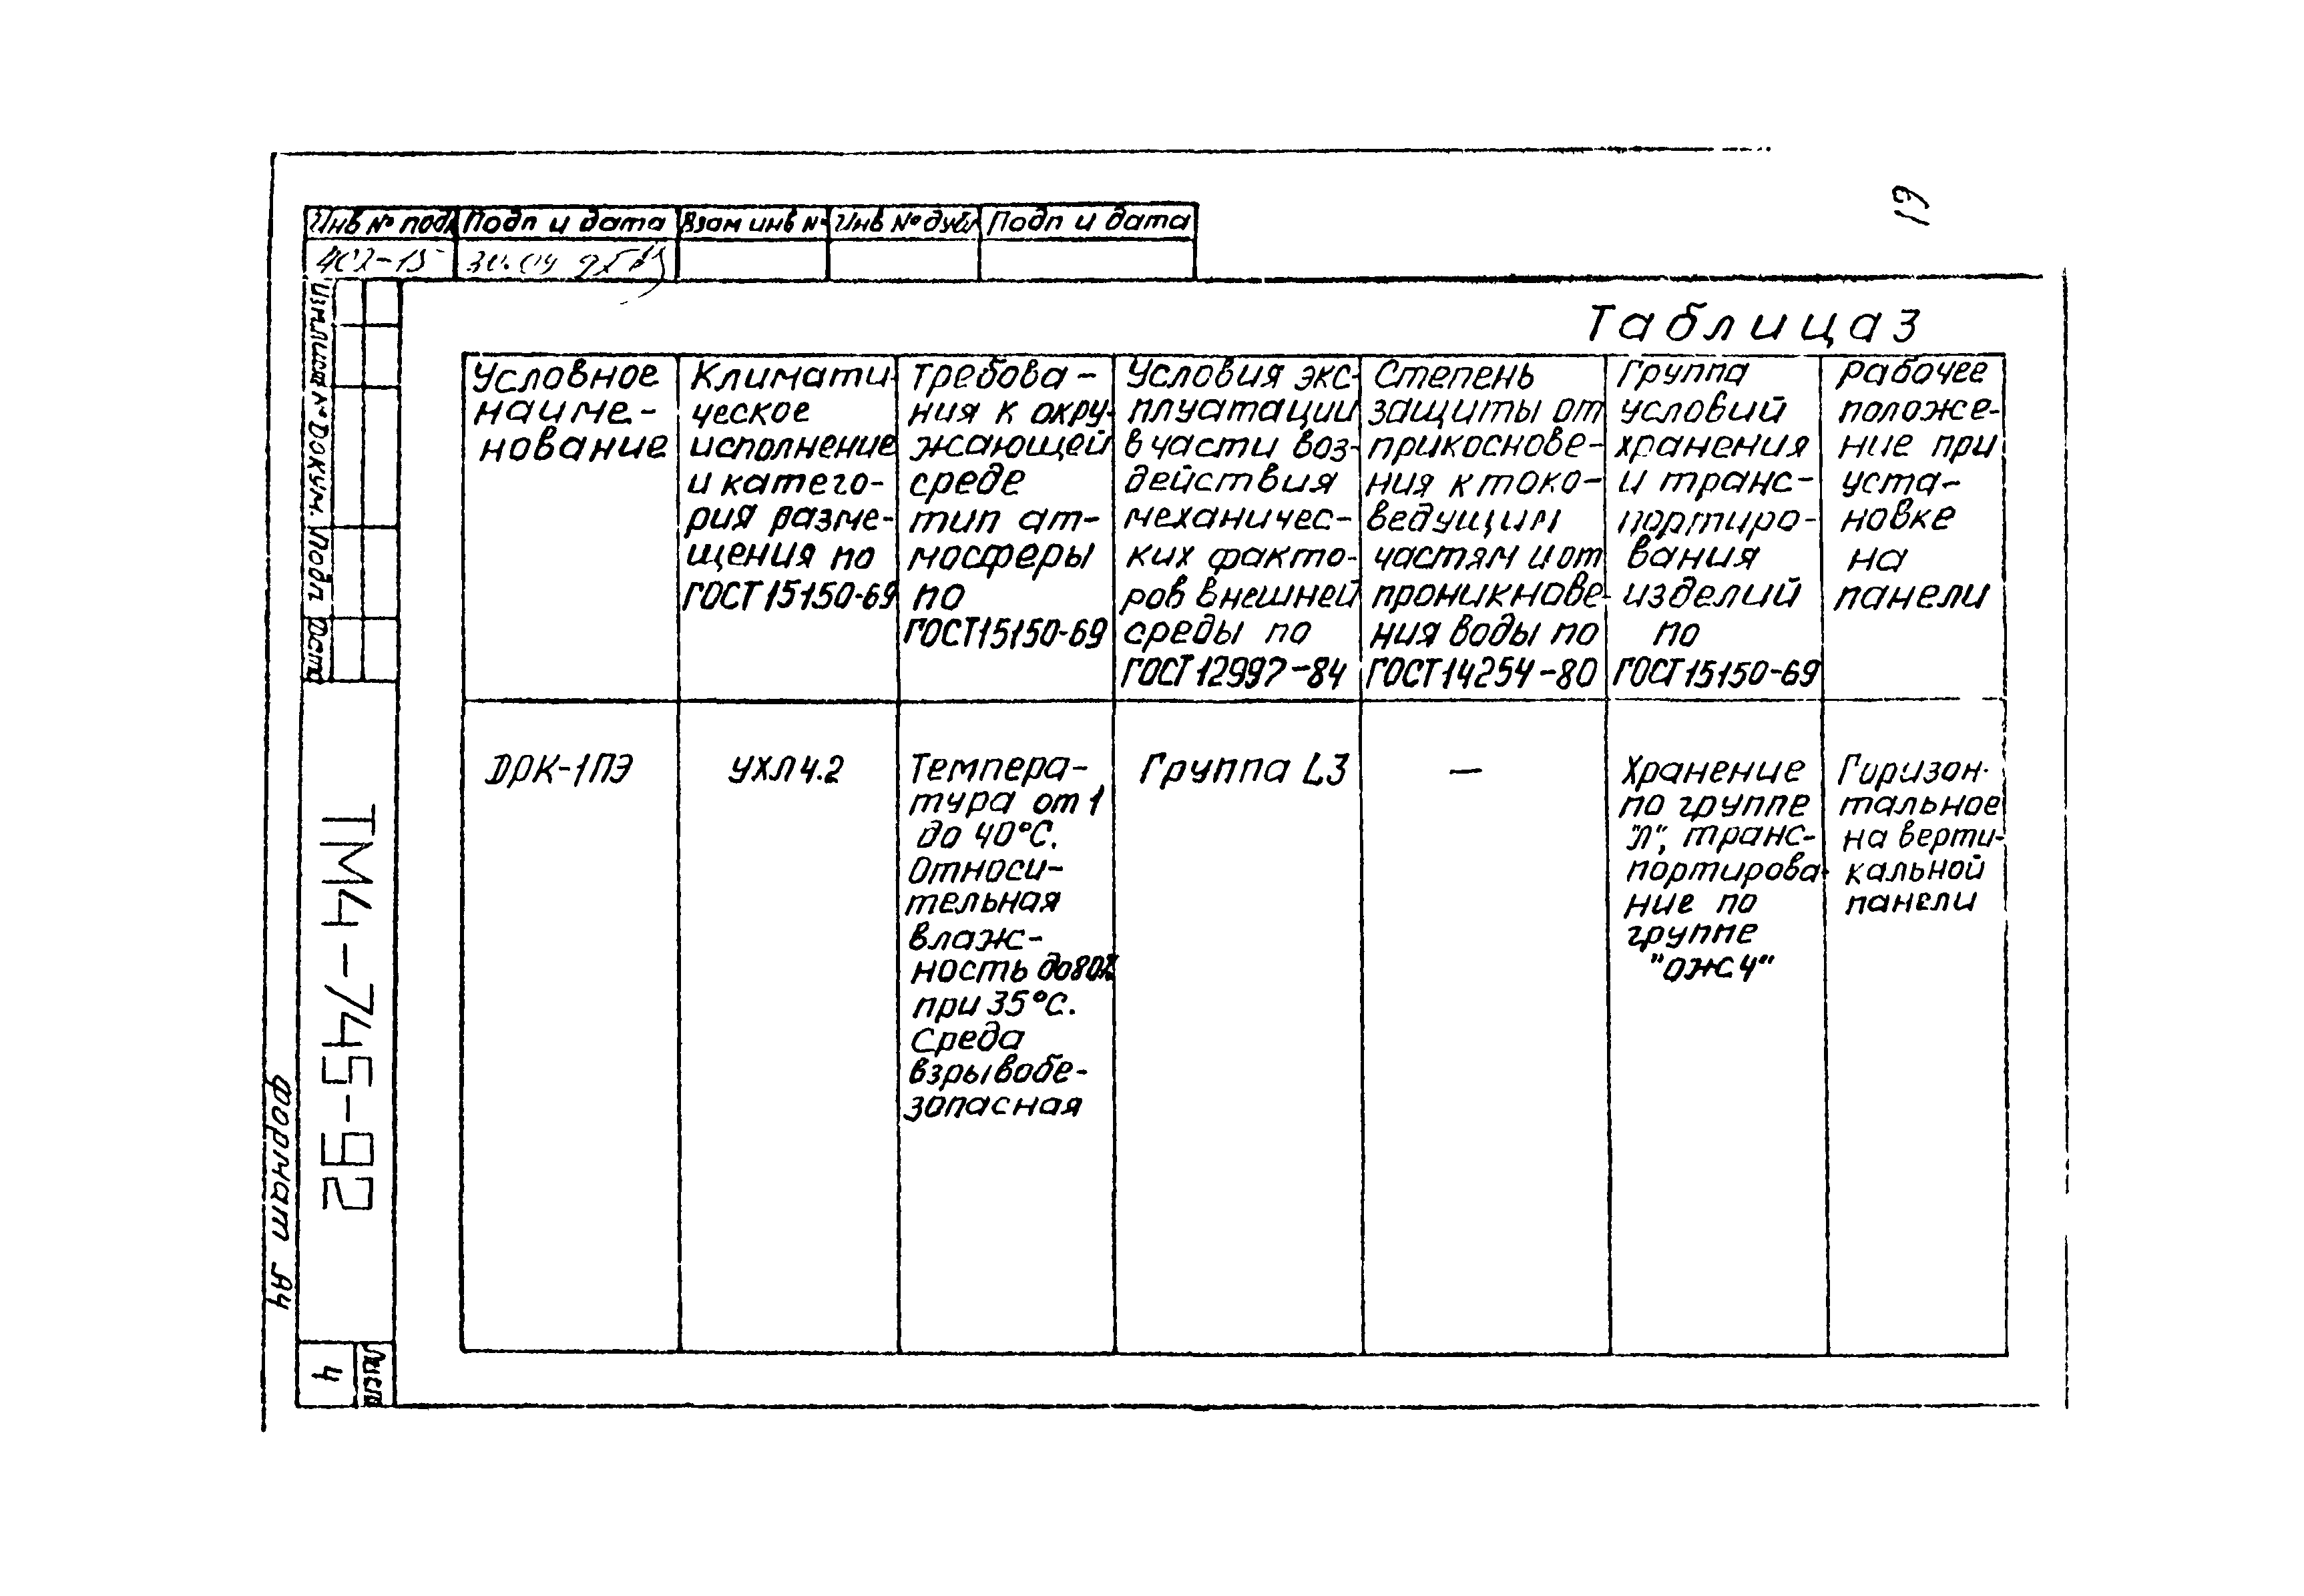 19
Инв № подл Подп и дата Взам инв № Инв № дубл Подп и дата
402-15 30.04
Изм Лист № Докум. Подп Дата
Таблица 3
Условное
наиме-
нование
Климати-
ческое
исполнение
и катего-
рия разме-
щения по
ГОСТ 15150-69
Требова-
ния к окру-
жающей
среде
тип ат-
мосферы
по
ГОСТ 15150-69
Условия экс-
плуатации
в части воз-
действия
механичес-
ких факто-
ров внешней
среды по
ГОСТ 12997-84
Степень
защиты от
прикоснове-
ния к токо-
ведущим
частям и от
проникнове-
ния воды по
ГОСТ 14254-80
Группа
условий
хранения
и транс-
портиро-
вания
изделий
по
ГОСТ 15150-69
Рабочее
положе-
ние при
уста-
новке
на
панели
ДРК-1ПЭ
УХЛ 4.2
Темпера-
тура от 1
до 40°С.
Относи-
тельная
влаж-
ность до 80%
при 35°С.
Среда
взрывобе-
зопасная
Группа L3
—
Хранение
по группе
"Л", транс-
портирова-
ние по
группе
"ОЖ4"
Горизон-
тальное
на верти-
кальной
панели
ТМ4-745-92
Лист
4
формат А4